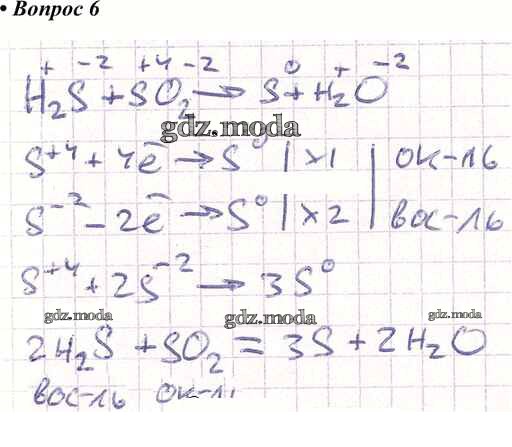 • Вопрос 6
+ -2 +4 -2 0 + -2
H₂S + SO₂ → S + H₂O
gdz.moda
S⁺⁴ + 4ē → S⁰ | ×1 | ок-ль
S⁻² - 2ē → S⁰ | ×2 | вос-ль
S⁺⁴ + 2S⁻² → 3S⁰
gdz.moda gdz.moda gdz.moda
2H₂S + SO₂ = 3S + 2H₂O
вос-ль ок-ль